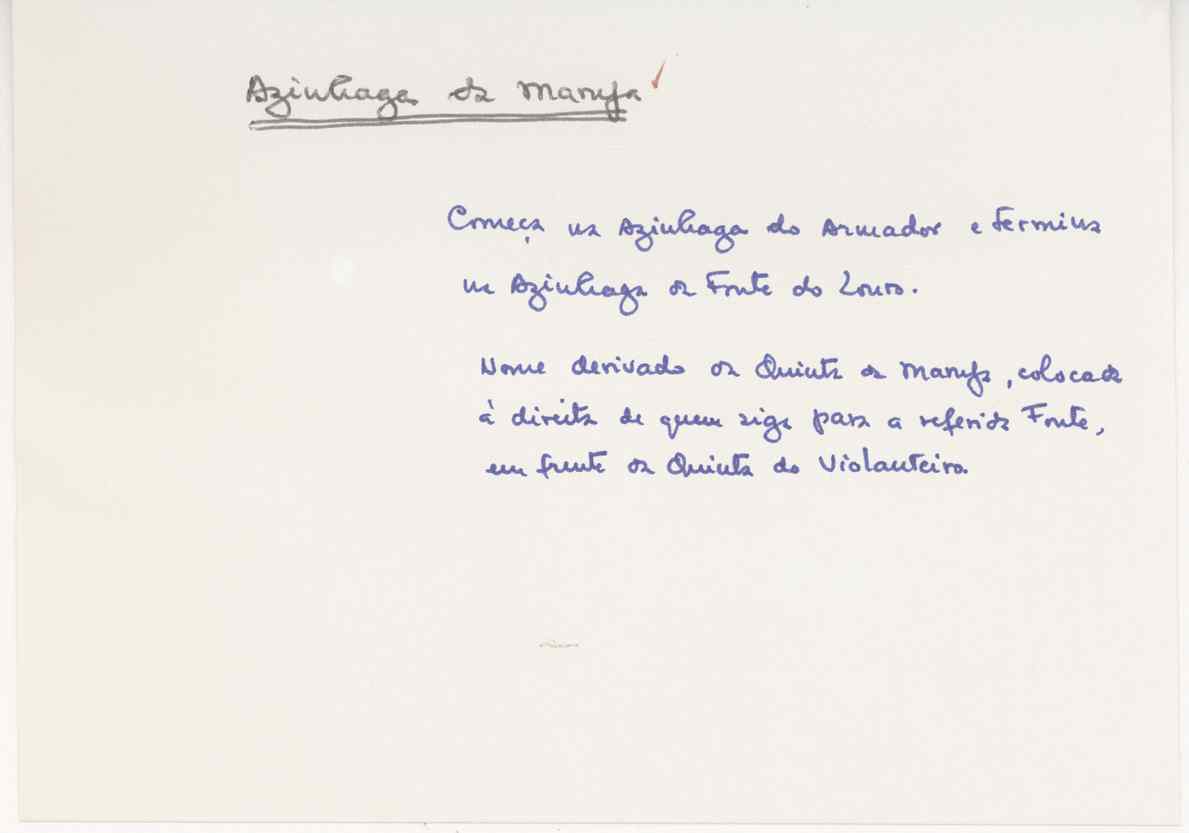 Azinhaga da Marufa
Começa na Azinhaga do Armador e termina
na Azinhaga da Fonte do Louro.
Nome derivado da Quinta da Marufa, colocada
à direita de quem siga para a referida Fonte,
em frente da Quinta do Violanteiro.